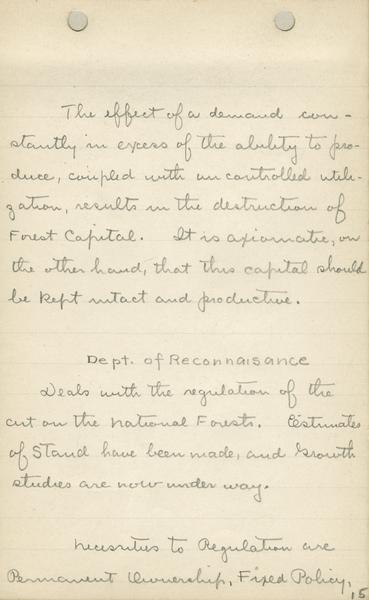 The effect of a demand con-
stantly in excess of the ability to pro-
duce, coupled with uncontrolled utili-
zation, results in the destruction of
Forest Capital. It is axiomatic, on
the other hand, that this capital should
be kept intact and productive.
Dept. of Reconnaisance
Deals with the regulation of the
cut on the National Forests. Estimates
of Stand have been made, and Growth
studies are now under way.
Necessities to Regulation are
Permanent Ownership, Fixed Policy,
15